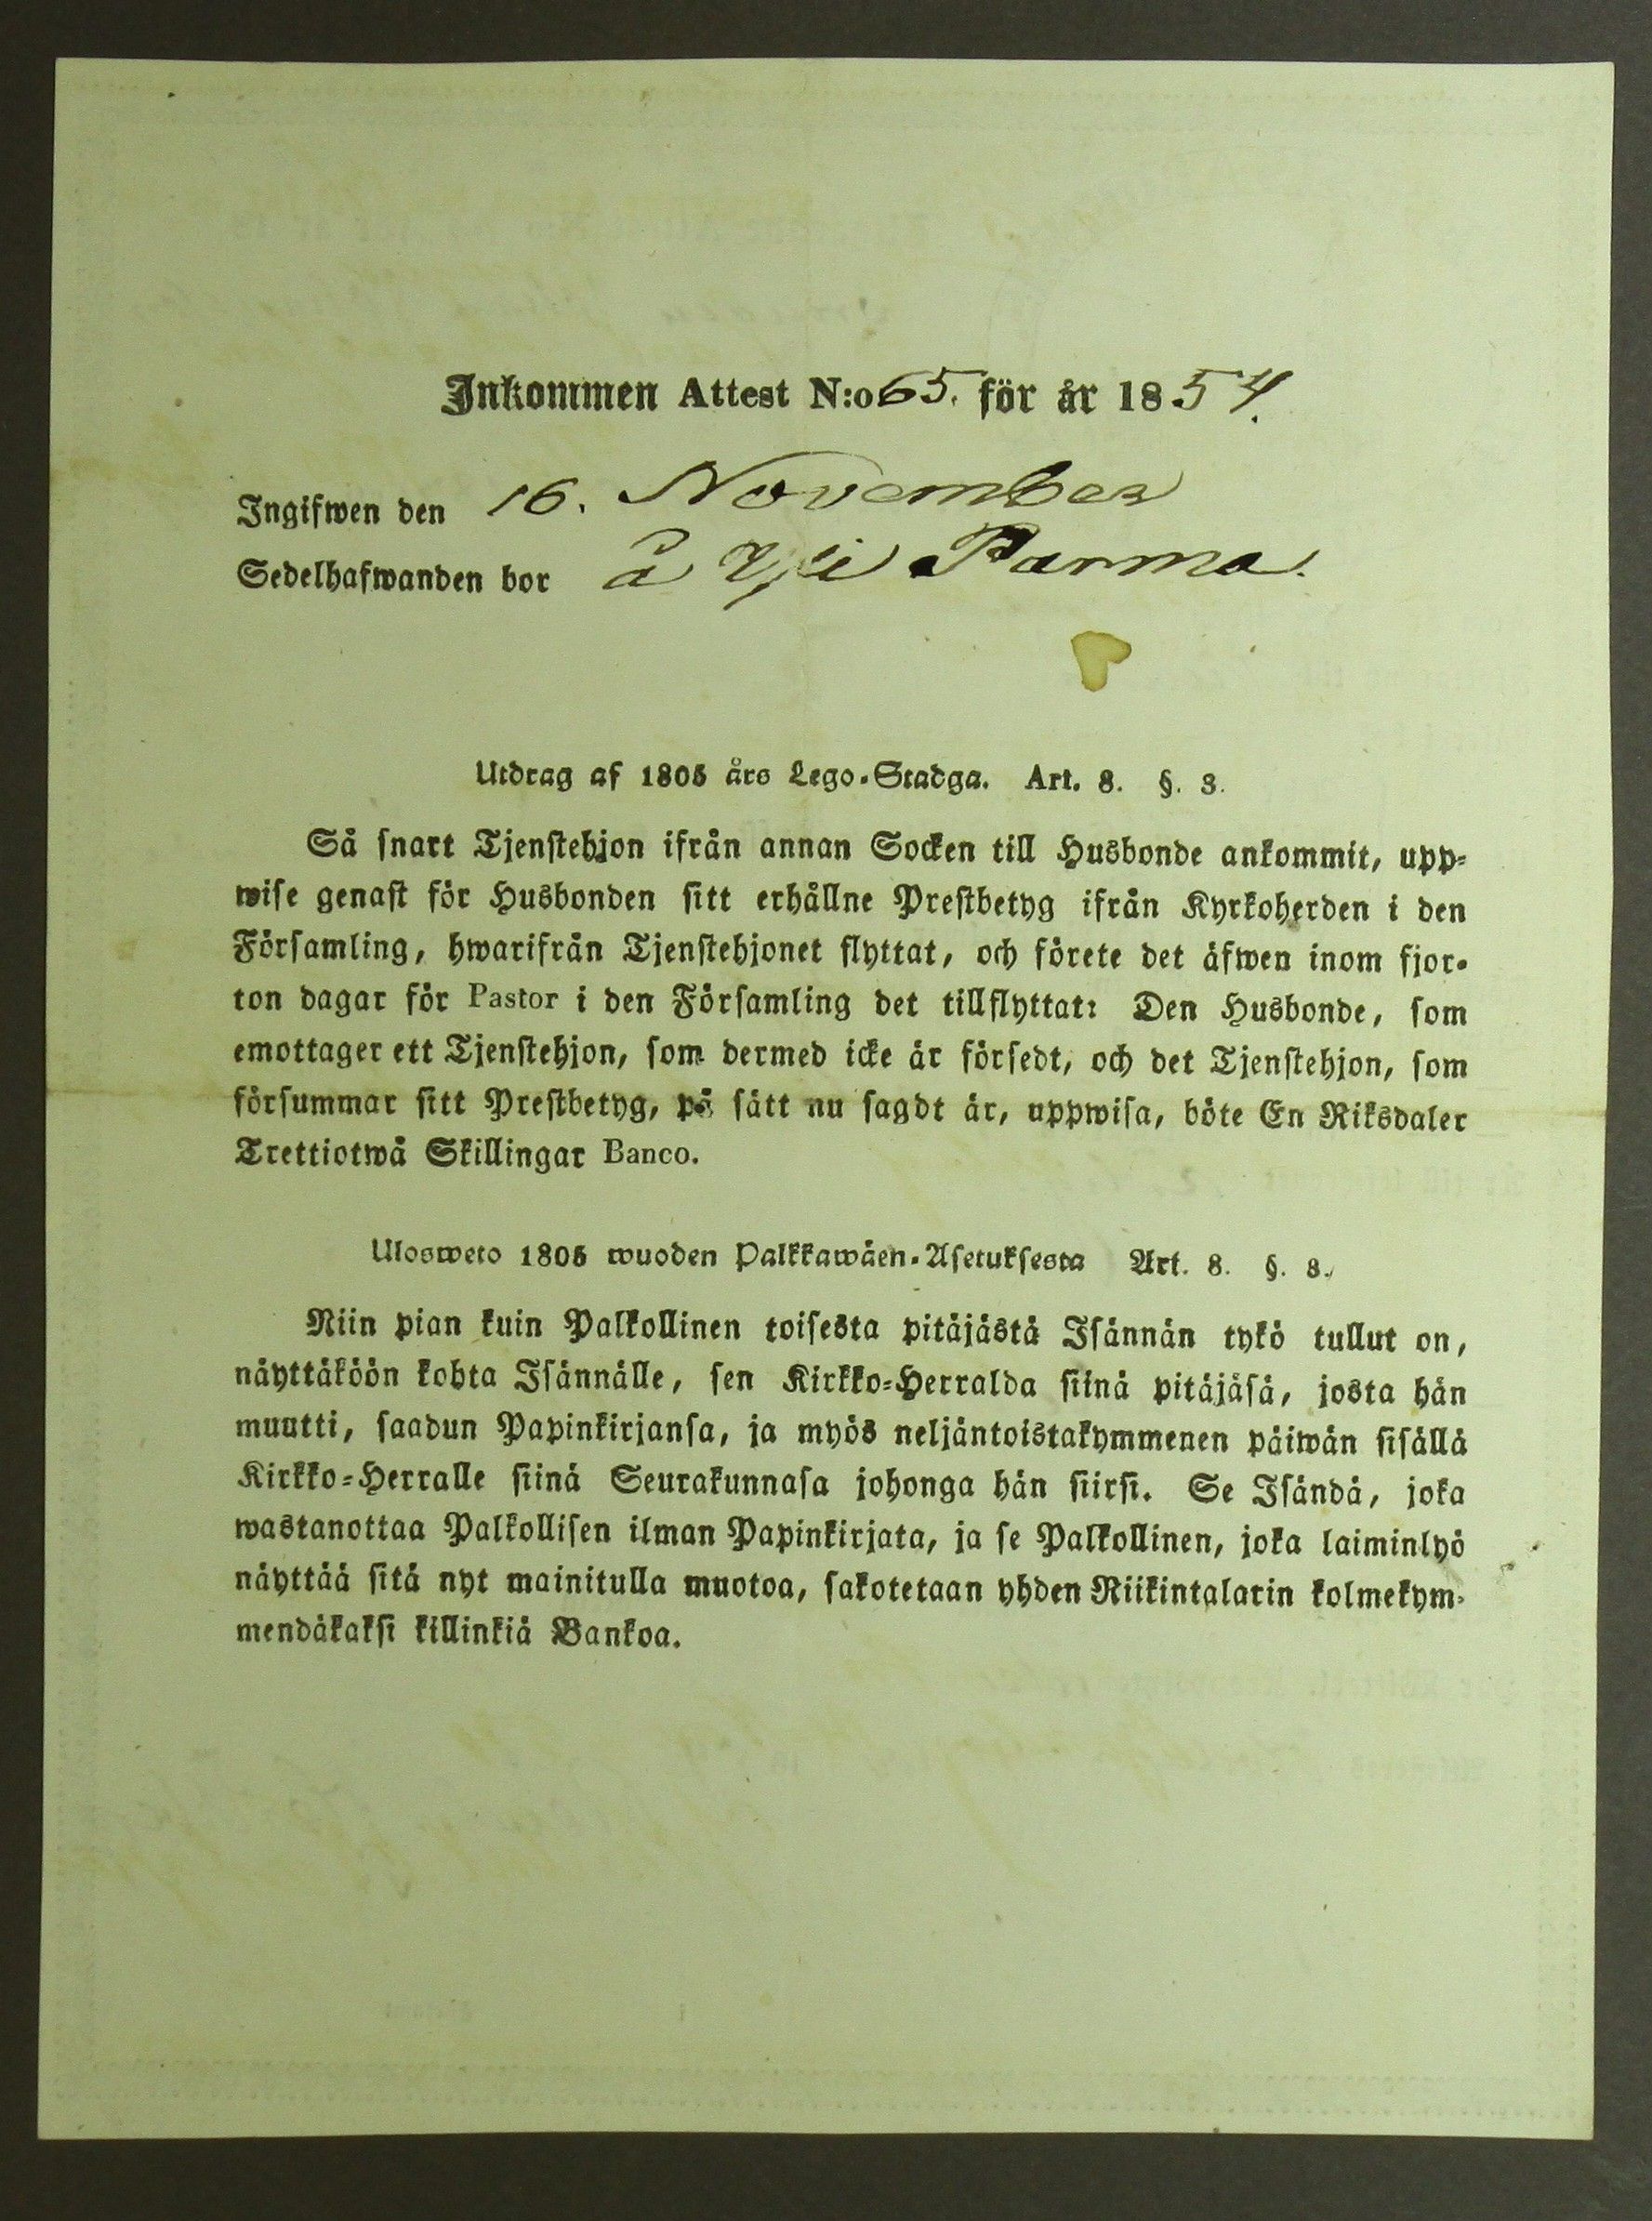 Inkommen Attest N:o 65. för år 1854.
Ingifwen den 16. November
Sedelhafwanden bor å Parma.
Utdrag af 1805 års Lego-Stadga. Art. 8. §. 3.
Så snart Tjenstehjon ifrån annan Socken till Husbonde ankommit, upp-
wise genast för Husbonden sitt erhållne Prestbetyg ifrån Kyrkoherden i den
Församling, hwarifrån Tjenstehjonet flyttat, och förete det äfwen inom fjor-
ton dagar för Pastor i den Församling det tillflyttat: Den Husbonde, som
emottager ett Tjenstehjon, som dermed icke är försedt, och det Tjenstehjon, som
försummar sitt Prestbetyg, på sätt nu sagdt är, uppwisa, böte En Riksdaler
Trettiotwå Skillingar Banco.
Ulosweto 1805 wuoden Palkkawäen-Asetuksesta Art. 8. §. 3.
Niin pian kuin Palkollinen toisesta pitäjästä Isännän tykö tullut on,
näyttäköön kohta Isännälle, sen Kirkko-Herralda siinä pitäjäsä, josta hän
muutti, saadun Papinkirjansa, ja myös neljäntoistakymmenen päiwän sisällä
Kirkko-Herralle siinä Seurakunnasa johonga hän siirsi. Se Isändä, joka
wastanottaa Palkollisen ilman Papinkirjata, ja se Palkollinen, joka laiminlyö
näyttää sitä nyt mainitulla muotoa, sakotetaan yhden Riikintalarin kolmekym-
mendäkaksi killinkiä Bankoa.